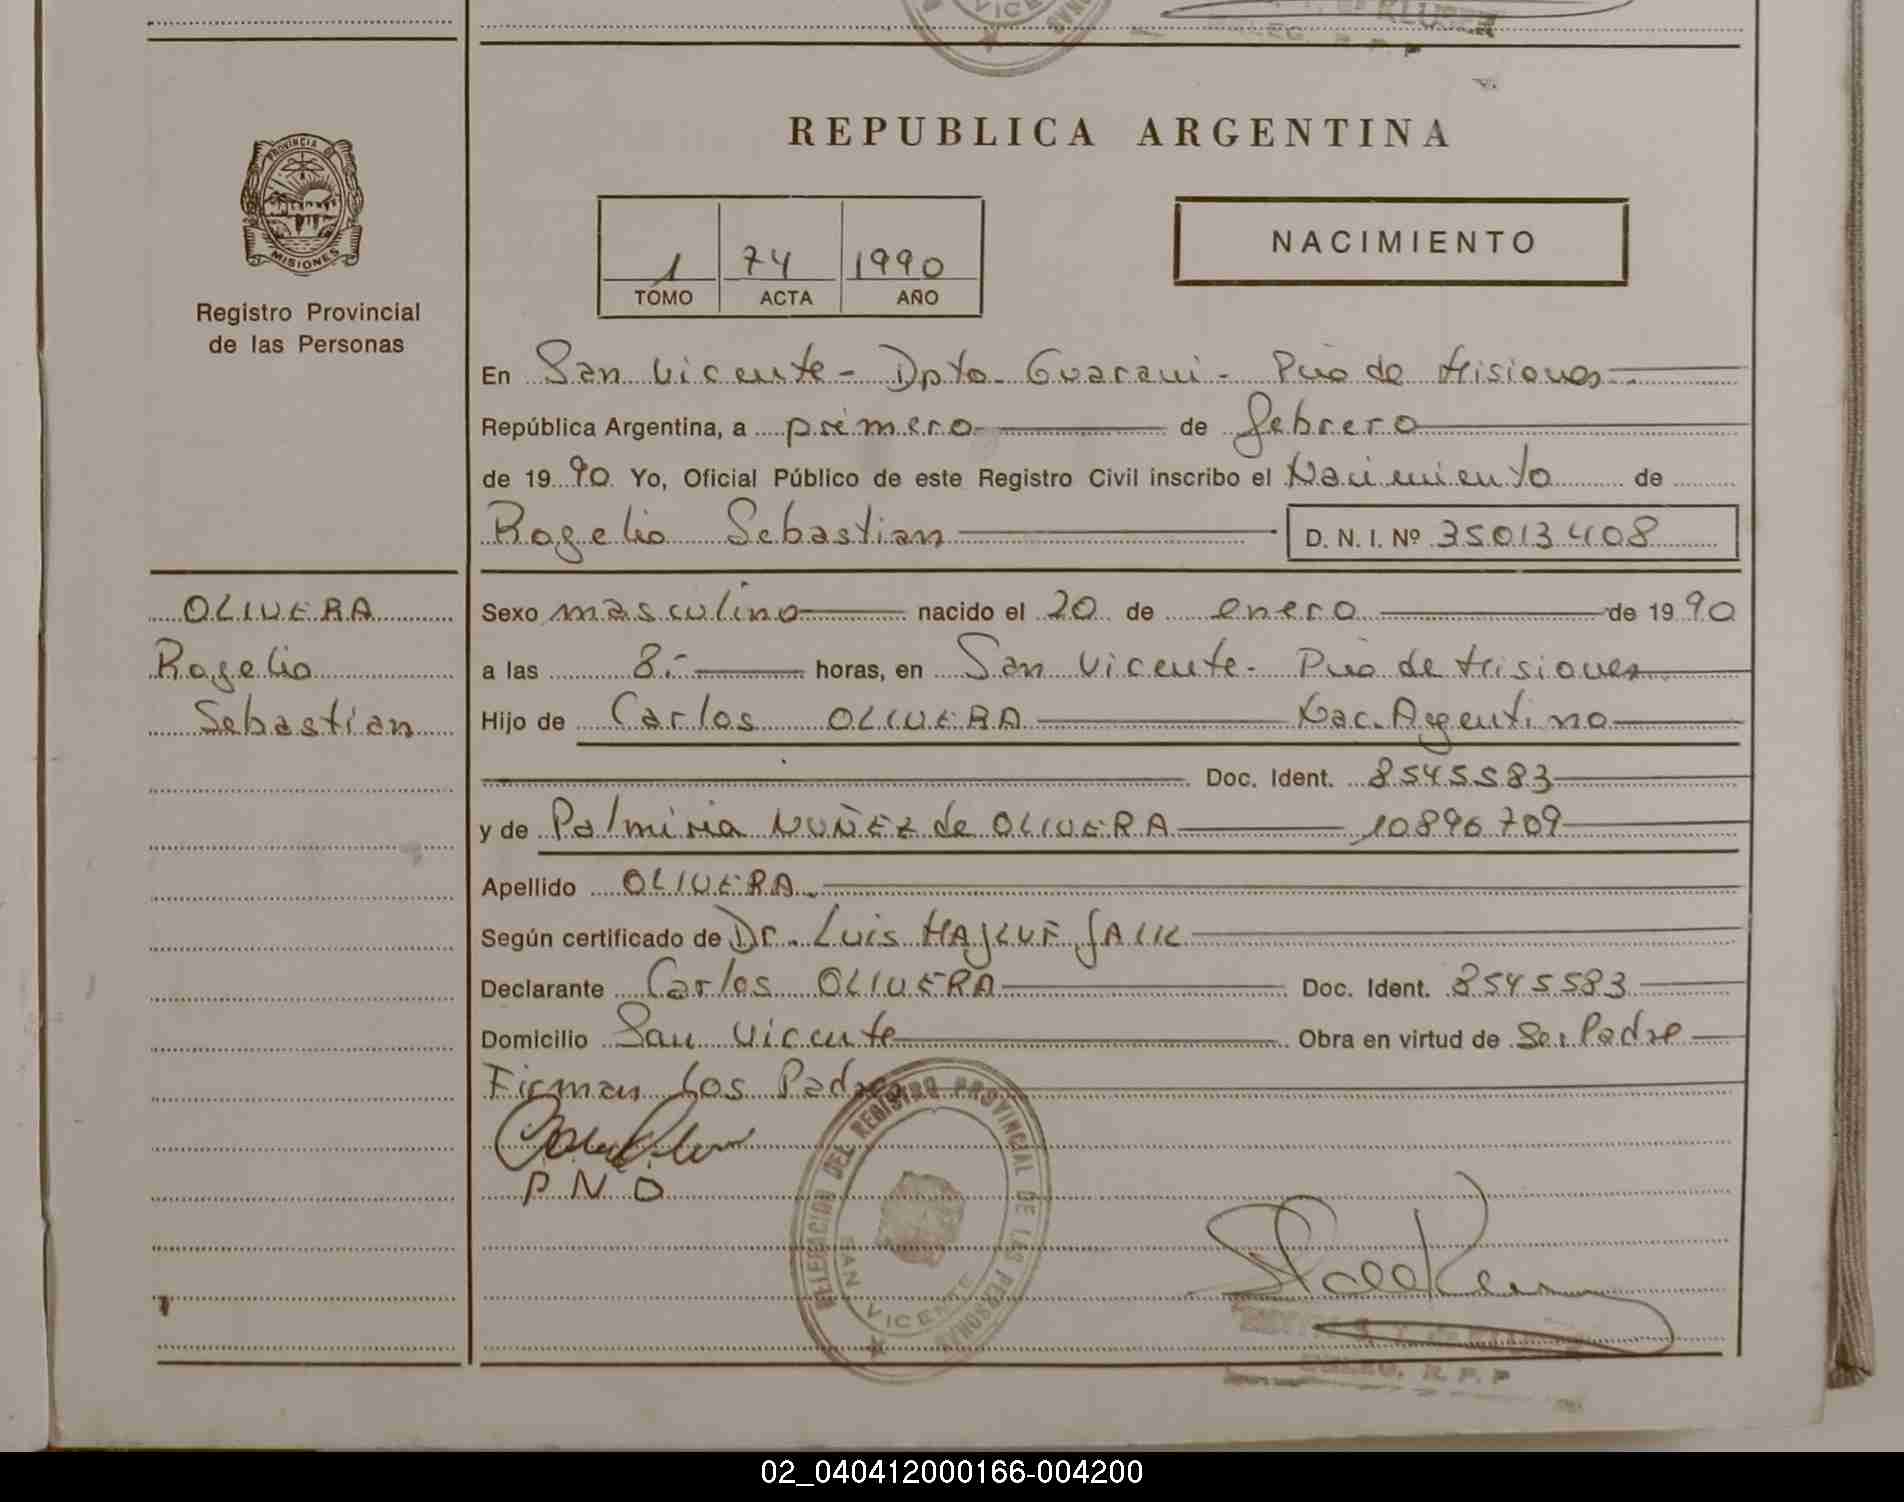 REPUBLICA ARGENTINA
PROVINCIA DE
MISIONES
Registro Provincial
de las Personas
1 74 1990
TOMO ACTA AÑO
NACIMIENTO
En San Vicente - Dpto. Guarani - Pcia de Misiones
República Argentina, a primero de febrero
de 1990 Yo, Oficial Público de este Registro Civil inscribo el Nacimiento de
Rogelio Sebastian D. N. I. Nº 35013408
OLIVERA
Rogelio
Sebastian
Sexo masculino nacido el 20 de enero de 1990
a las 8:- horas, en San Vicente - Pcia de Misiones
Hijo de Carlos OLIVERA Nac. Argentino
Doc. Ident. 8545583
y de Palmiria NUÑEZ de OLIVERA 10896709
Apellido OLIVERA
Según certificado de Dr. Luis
Declarante Carlos OLIVERA Doc. Ident. 8545583
Domicilio San Vicente Obra en virtud de Ser Padre
Firman Los Padres
P N O
DELEGACION DEL REGISTRO PROVINCIAL DE LAS PERSONAS
SAN VICENTE
DELEG. R. P. P
02_040412000166-004200